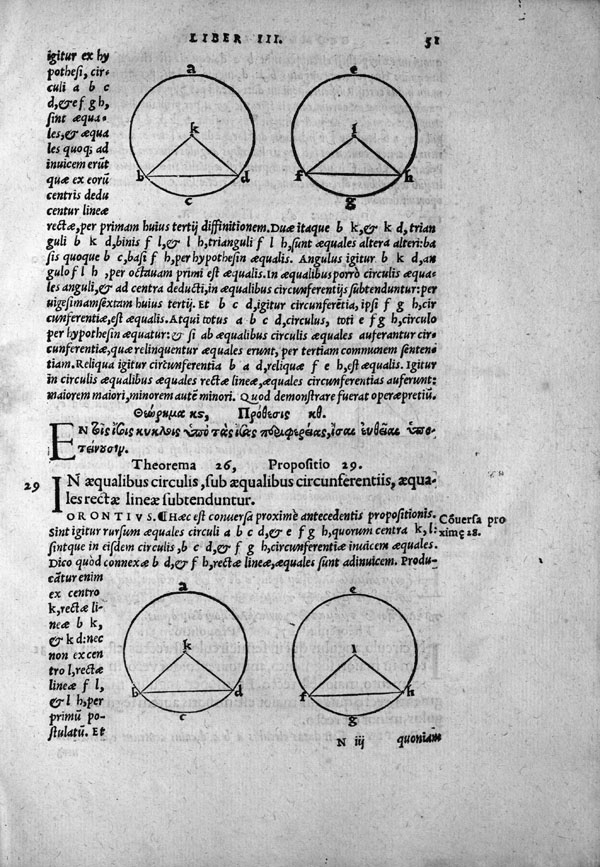 LIBER III. 51
igitur ex hy
pothesi, cir-
culi a b c
d, & e f g h,
sint æqua-
les, & æqua
les quoq; ad
inuicem erūt
quæ ex eorū
centris dedu
centur lineæ
a
k
b
d
c
e
l
f
h
g
rectæ, per primam huius tertij diffinitionem. Duæ itaque b k, & k d, trian
guli b k d, binis f l, & l h, trianguli f l h, sunt æquales altera alteri: ba
sis quoque b c, basi f h, per hypothesin æqualis. Angulus igitur b k d, an
gulo f l h, per octauam primi est æqualis. In æqualibus porrò circulis æqua-
les anguli, & ad centra deducti, in æqualibus circunferentijs subtenduntur: per
uigesimamsextam huius tertij. Et b c d, igitur circunferētia, ipsi f g h, cir
cunferentiæ, est æqualis. Atqui totus a b c d, circulus, toti e f g h, circulo
per hypothesin æquatur: & si ab æqualibus circulis æquales auferantur cir
cunferentiæ, quæ relinquentur æquales erunt, per tertiam communem senten
tiam. Reliqua igitur circunferentia b a d, reliquæ f e h, est æqualis. Igitur
in circulis æqualibus æquales rectæ lineæ, æquales circunferentias auferunt:
maiorem maiori, minorem autē minori. Quod demonstrare fuerat operæpretiū.
Θεώρημα κϛ, Πρόθεσις κθ.
ΕΝ τοῖς ἴσοις κύκλοις ὑπὸ τὰς ἴσας περιφερείας, ἴσαι εὐθεῖαι ὑπο-
τείνουσιν.
Theorema 26, Propositio 29.
29 IN æqualibus circulis, sub æqualibus circunferentiis, æqua-
les rectæ lineæ subtenduntur.
ORONTIVS. ¶Hæc est conuersa proximè antecedentis propositionis.
Cōuersa pro
ximę 28.
Sint igitur rursum æquales circuli a b c d, & e f g h, quorum centra k, l:
sintque in eisdem circulis, b c d, & f g h, circunferentiæ inuicem æquales.
Dico quod connexæ b d, & f h, rectæ lineæ, æquales sunt adinuicem. Produ-
cātur enim
ex centro
k, rectæ li-
neæ b k,
& k d: nec
non ex cen
tro l, rectæ
lineæ f l,
& l h, per
primū po-
stulatū. Et
a
k
b
d
c
e
l
f
h
g
N iij quoniam